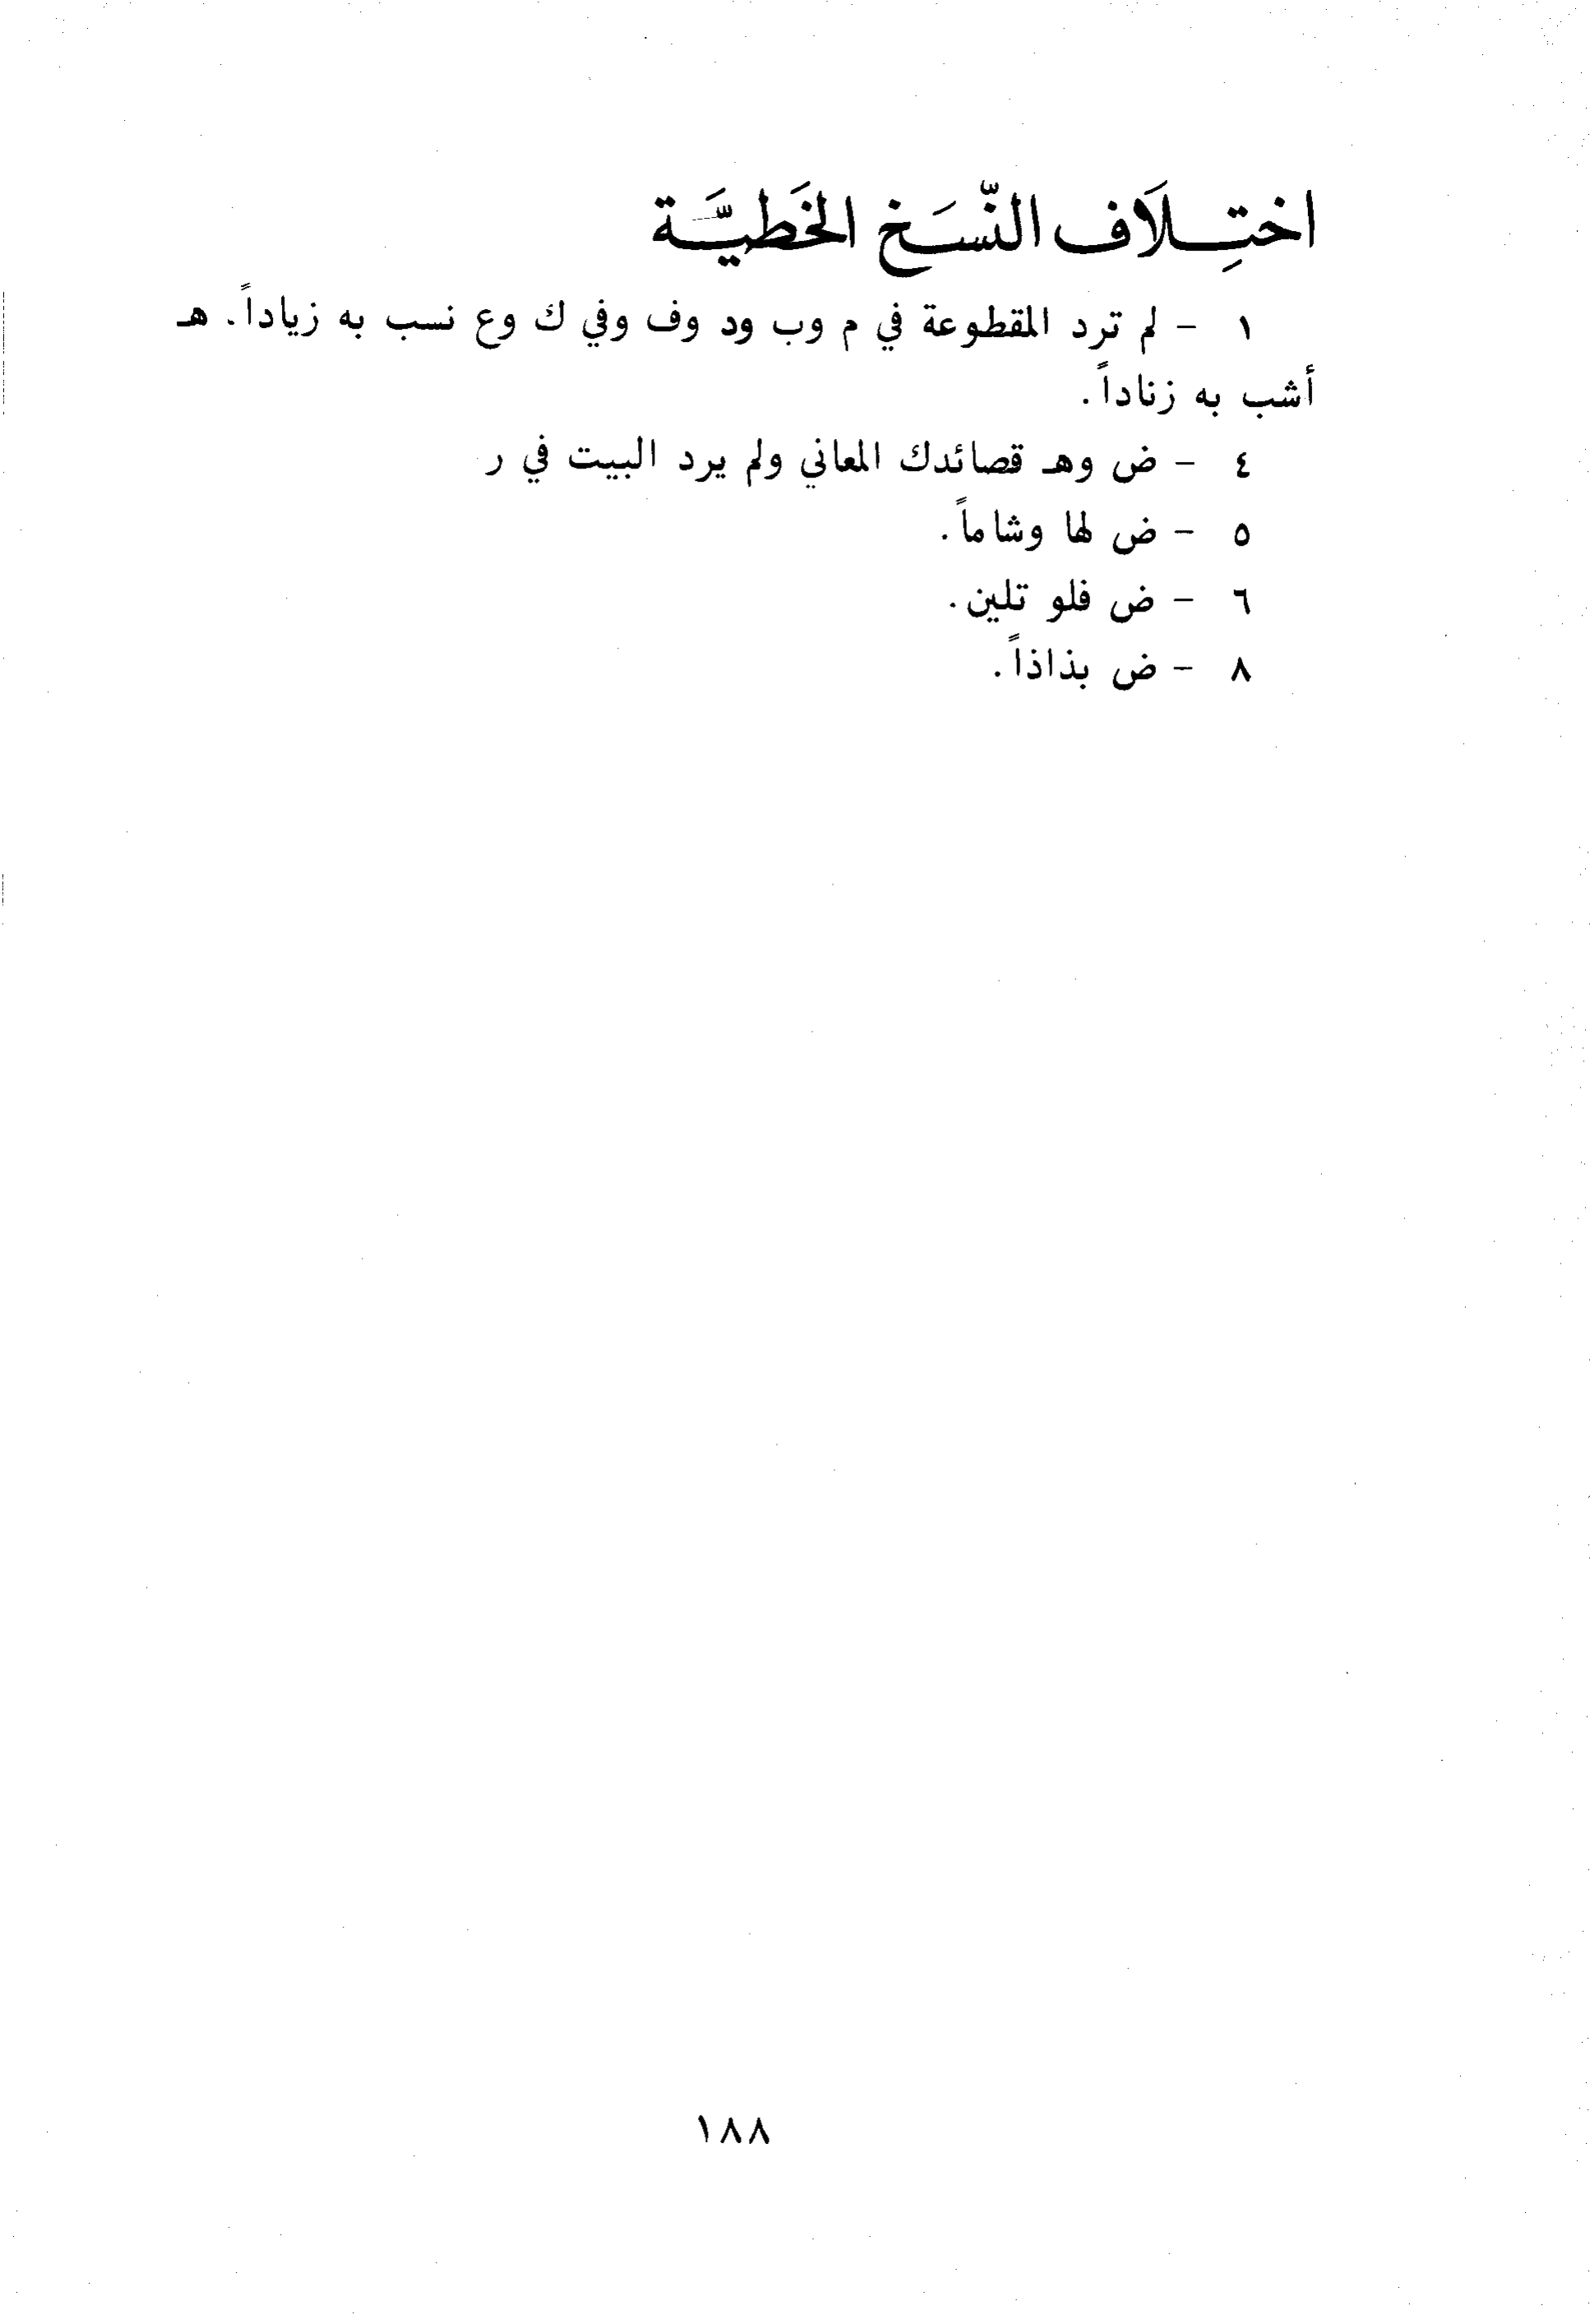 اختِلَاف النّسَخ الخَطيَّة
١ - لم ترد المقطوعة في م وب ود وف وفي ك وع نسب به زياداً. هـ
أشب به زناداً.
٤ - ض وهـ قصائدك المعاني ولم يرد البيت في ر
٥ - ض لها وشاماً.
٦ - ض فلو تلين.
٨ - ض بذاذاً.
١٨٨